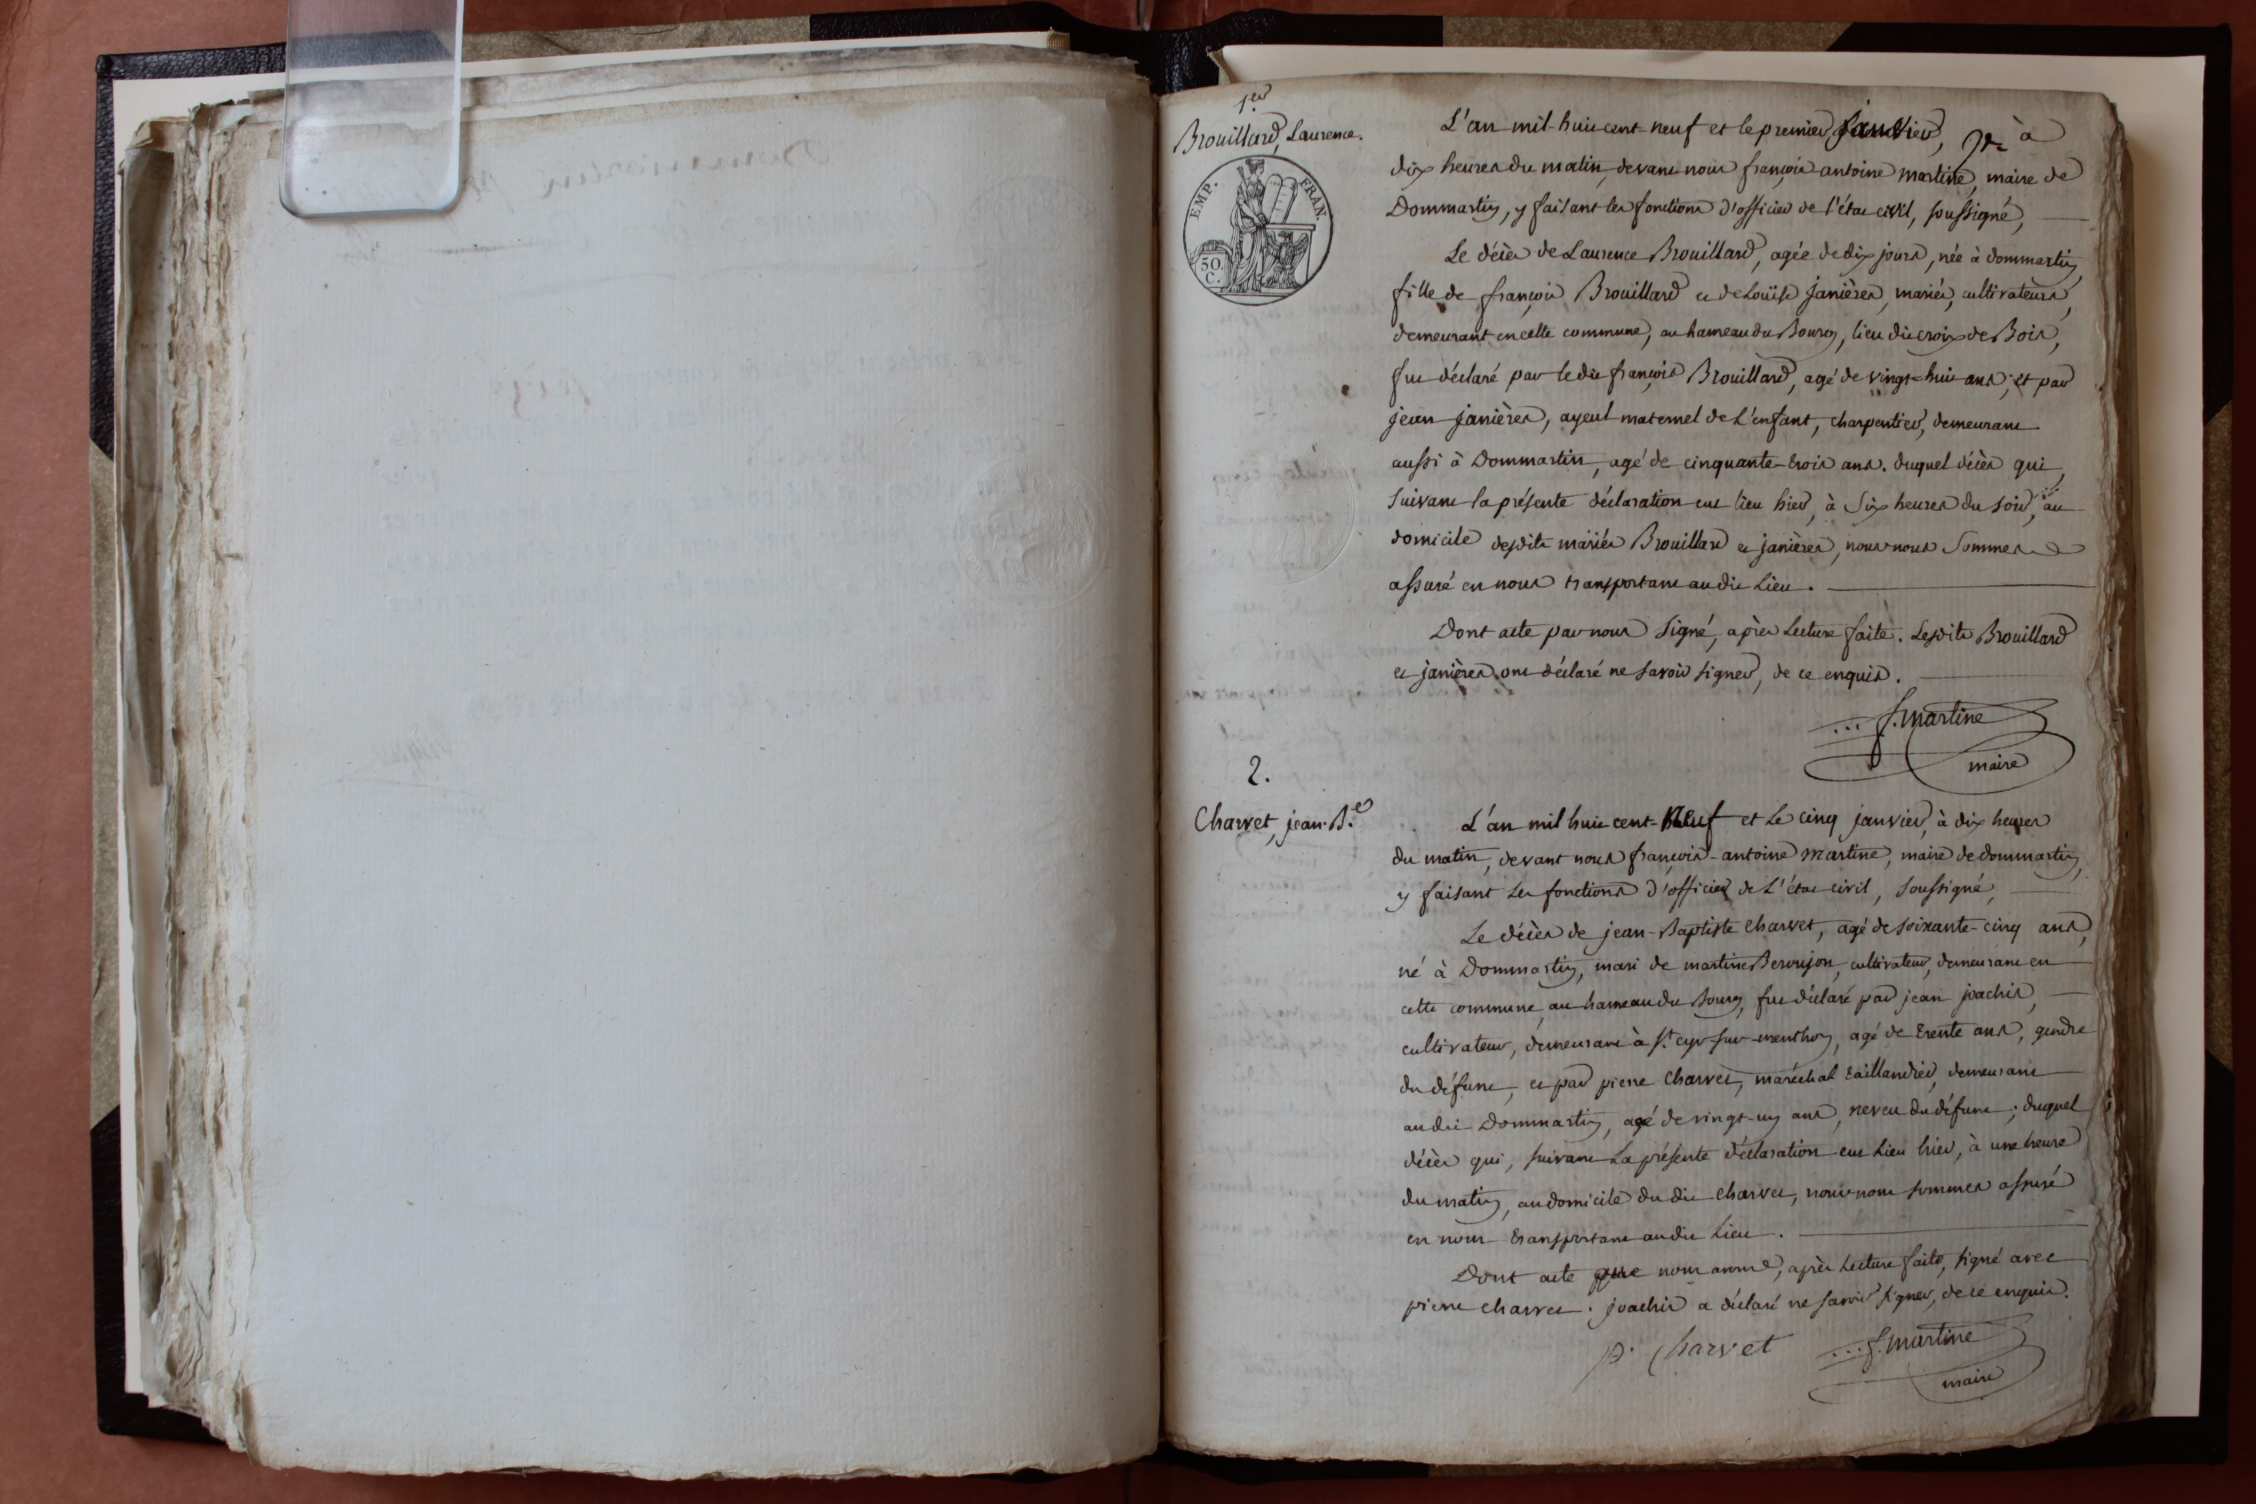 1.er
Brouillard, Laurence.
EMP. FRAN.
50. C.
L'an mil-huit cent-neuf et le premier janvier, à
dix heures du matin, devant nous françois antoine martine, maire de
Dommartin, y faisant les fonctions d'officier de l'état civil, soussigné,
Le décès de Laurence Brouillard, agée de dix jours, née à dommartin,
fille de françois Brouillard et de Loüise janières, mariés, cultivateurs,
demeurant en cette commune, au hameau du Bourg, lieu dit croix de Bois,
fut déclaré par le dit françois Brouillard, agé de vingt-huit ans, et par
jean janières, ayeul maternel de L'enfant, charpentier, demeurant
aussi à Dommartin, agé de cinquante-trois ans. duquel décès qui,
suivant la présente déclaration eut lieu hier, à six heures du soir, au
domicile desdits mariés Brouillard et janières, nous nous sommes
assuré en nous transportant audit Lieu.
Dont acte par nous signé, après Lecture faite. Lesdits Brouillard
et janières ont déclaré ne savoir signer, de ce enquis.
f. martine
maire
2.
Charvet, jean-B.te
L'an mil huit cent-neuf et Le cinq janvier, à dix heures
du matin, devant nous françois-antoine martine, maire de dommartin,
y faisant Les fonctions d'officier de L'état civil, soussigné,
Le décès de jean-Baptiste charvet, agé de soixante-cinq ans,
né à Dommartin, mari de martine Beroujon, cultivateur, demeurant en
cette commune, au hameau du bourg, fut déclaré par jean joachis,
cultivateur, demeurant à st. cyr sur-menthon, agé de trente ans, gendre
du défunt, et par pierre charvet, maréchal taillandier, demeurant
au dit Dommartin, agé de vingt-un ans, neveu du défunt; duquel
décès qui, suivant La présente déclaration eut Lieu hier, à une heure
du matin, au domicile du dit charvet, nous nous sommes assuré
en nous transportant audit Lieu.
Dont acte que nous avons, après Lecture faite, signé avec
pierre charvet. joachis a déclaré ne savoir signer, de ce enquis.
p. charvet
f. martine
maire